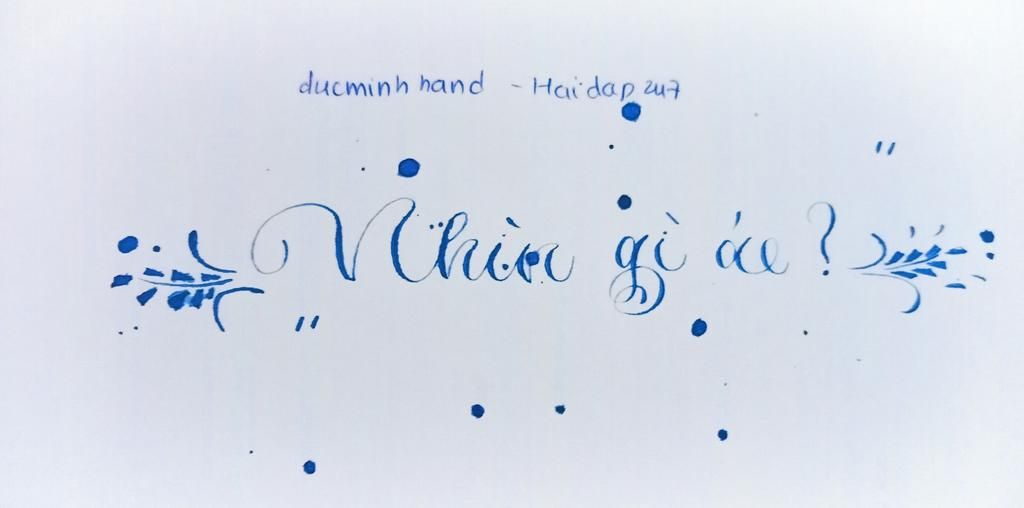 ducminh hand - Haidap 247
"Nhìn gì áe?"